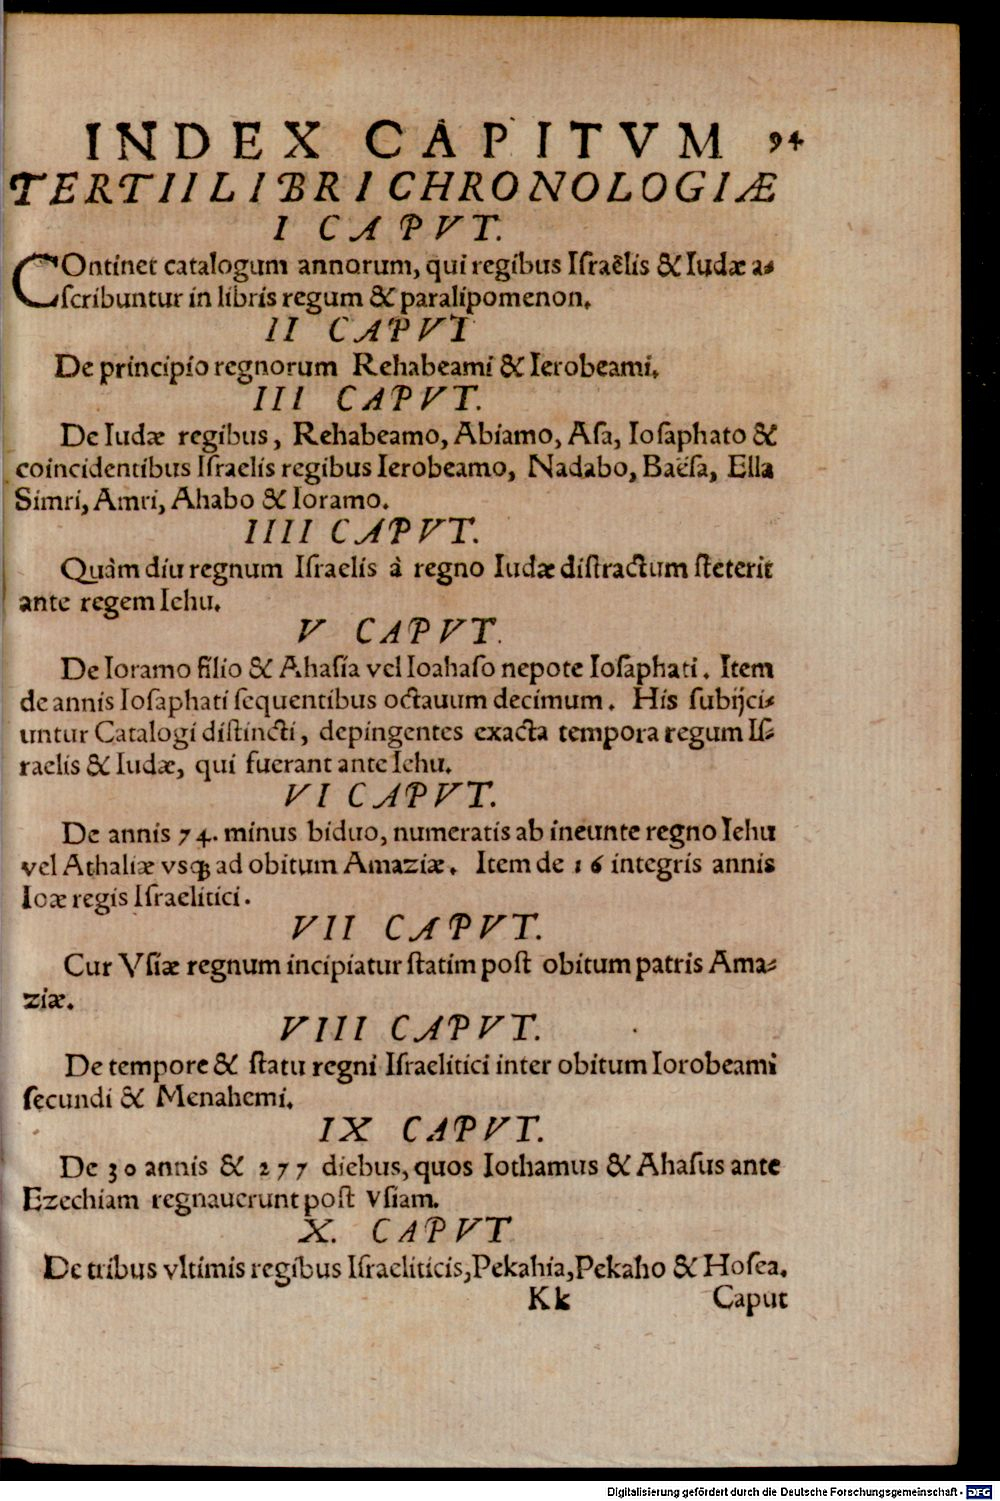 INDEX CAPITVM 94
TERTII LIBRI CHRONOLOGIÆ
I CAPVT.
COntinet catalogum annorum, qui regibus Iſraëlis & Iudæ a-
ſcribuntur in libris regum & paralipomenon.
II CAPVT
De principio regnorum Rehabeami & Ierobeami.
III CAPVT.
De Iudæ regibus, Rehabeamo, Abiamo, Aſa, Ioſaphato &
coincidentibus Iſraelis regibus Ierobeamo, Nadabo, Baëſa, Ella
Simri, Amri, Ahabo & Ioramo.
IIII CAPVT.
Quàm diu regnum Iſraelis à regno Iudæ diſtractum ſteterit
ante regem Iehu.
V CAPVT.
De Ioramo filio & Ahaſia vel Ioahaſo nepote Ioſaphati. Item
de annis Ioſaphati ſequentibus octauum decimum. His ſubijci-
untur Catalogi diſtincti, depingentes exacta tempora regum Iſ-
raelis & Iudæ, qui fuerant ante Iehu.
VI CAPVT.
De annis 74. minus biduo, numeratis ab ineunte regno Iehu
vel Athaliæ vsq; ad obitum Amaziæ. Item de 16 integris annis
Ioæ regis Iſraelitici.
VII CAPVT.
Cur Vſiæ regnum incipiatur ſtatim poſt obitum patris Ama-
ziæ.
VIII CAPVT.
De tempore & ſtatu regni Iſraelitici inter obitum Iorobeami
ſecundi & Menahemi.
IX CAPVT.
De 30 annis & 277 diebus, quos Iothamus & Ahaſus ante
Ezechiam regnauerunt poſt Vſiam.
X. CAPVT
De tribus vltimis regibus Iſraeliticis, Pekahia, Pekaho & Hoſea.
Kk Caput
Digitalisierung gefördert durch die Deutsche Forschungsgemeinschaft - DFG